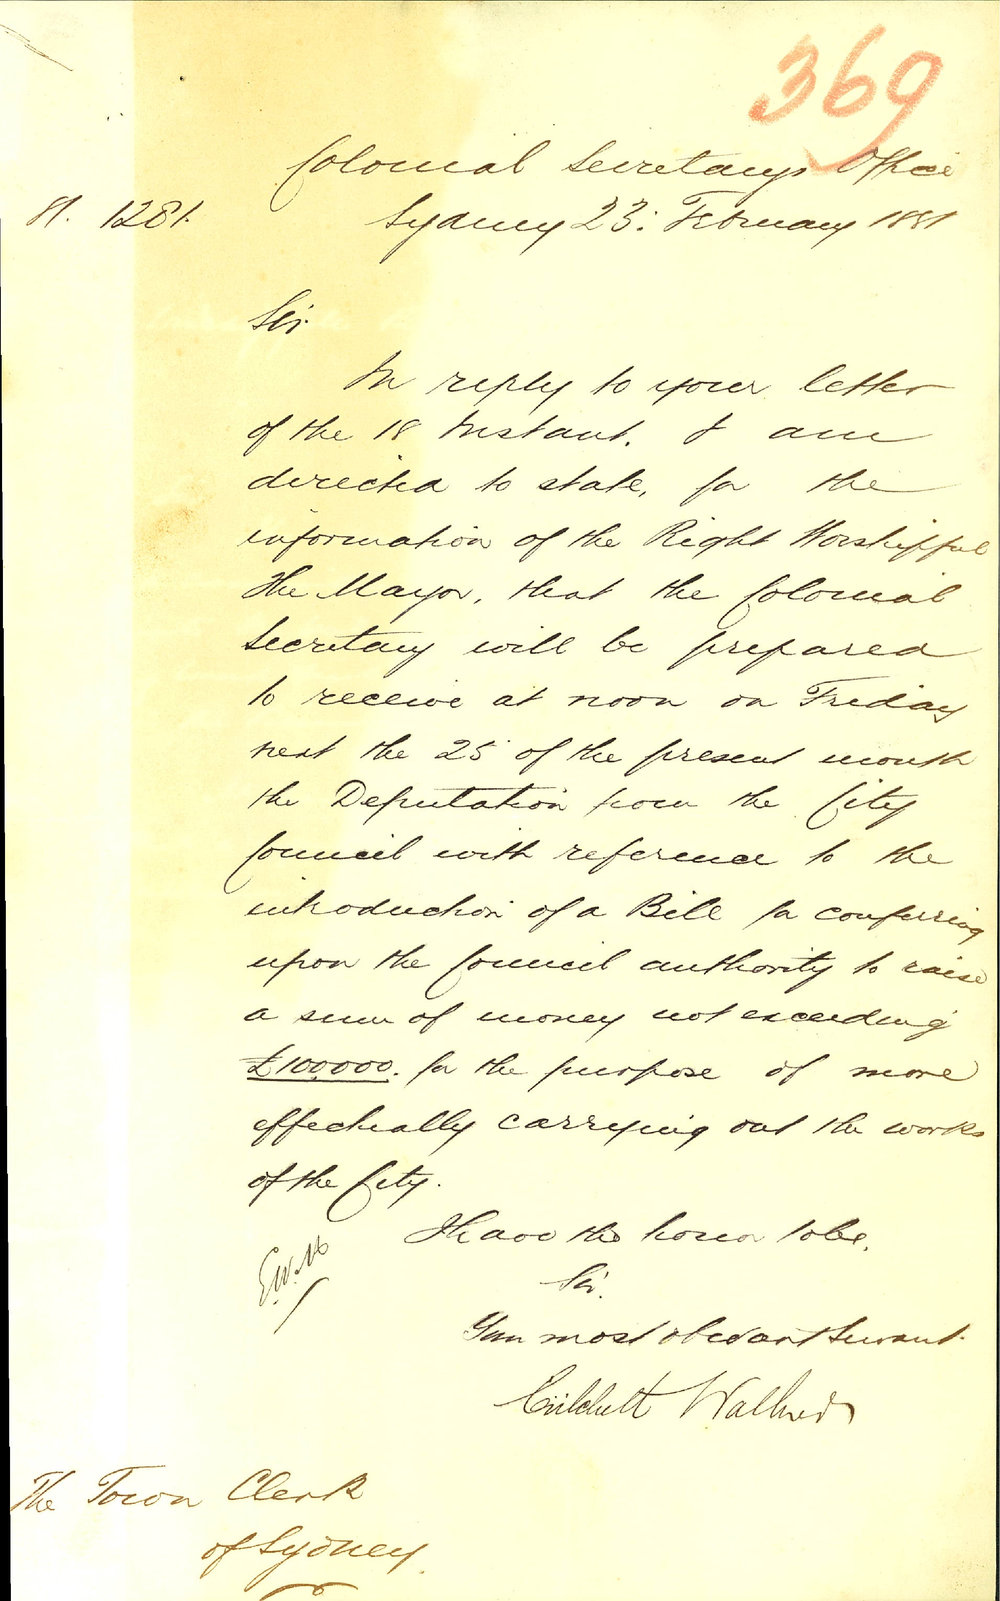 369
Colonial Secretarys Office
81. 1281.
Sydney 23: February 1881
Sir
In reply to your letter
of the 18 Instant. I am
directed to state, for the
information of the Right Worshipful
the Mayor, that the Colonial
Secretary will be prepared
to receive at noon on Friday
next the 25 of the present month
the Deputation from the City
Council with reference to the
introduction of a Bill for conferring
upon the Council authority to raise
a sum of money not exceeding
£100000. for the purpose of more
effectually carrying out the works
of the City.
I have the honor to be,
Sir.
Your most obedient Servant.
Critchett Walker
The Town Clerk
of Sydney.